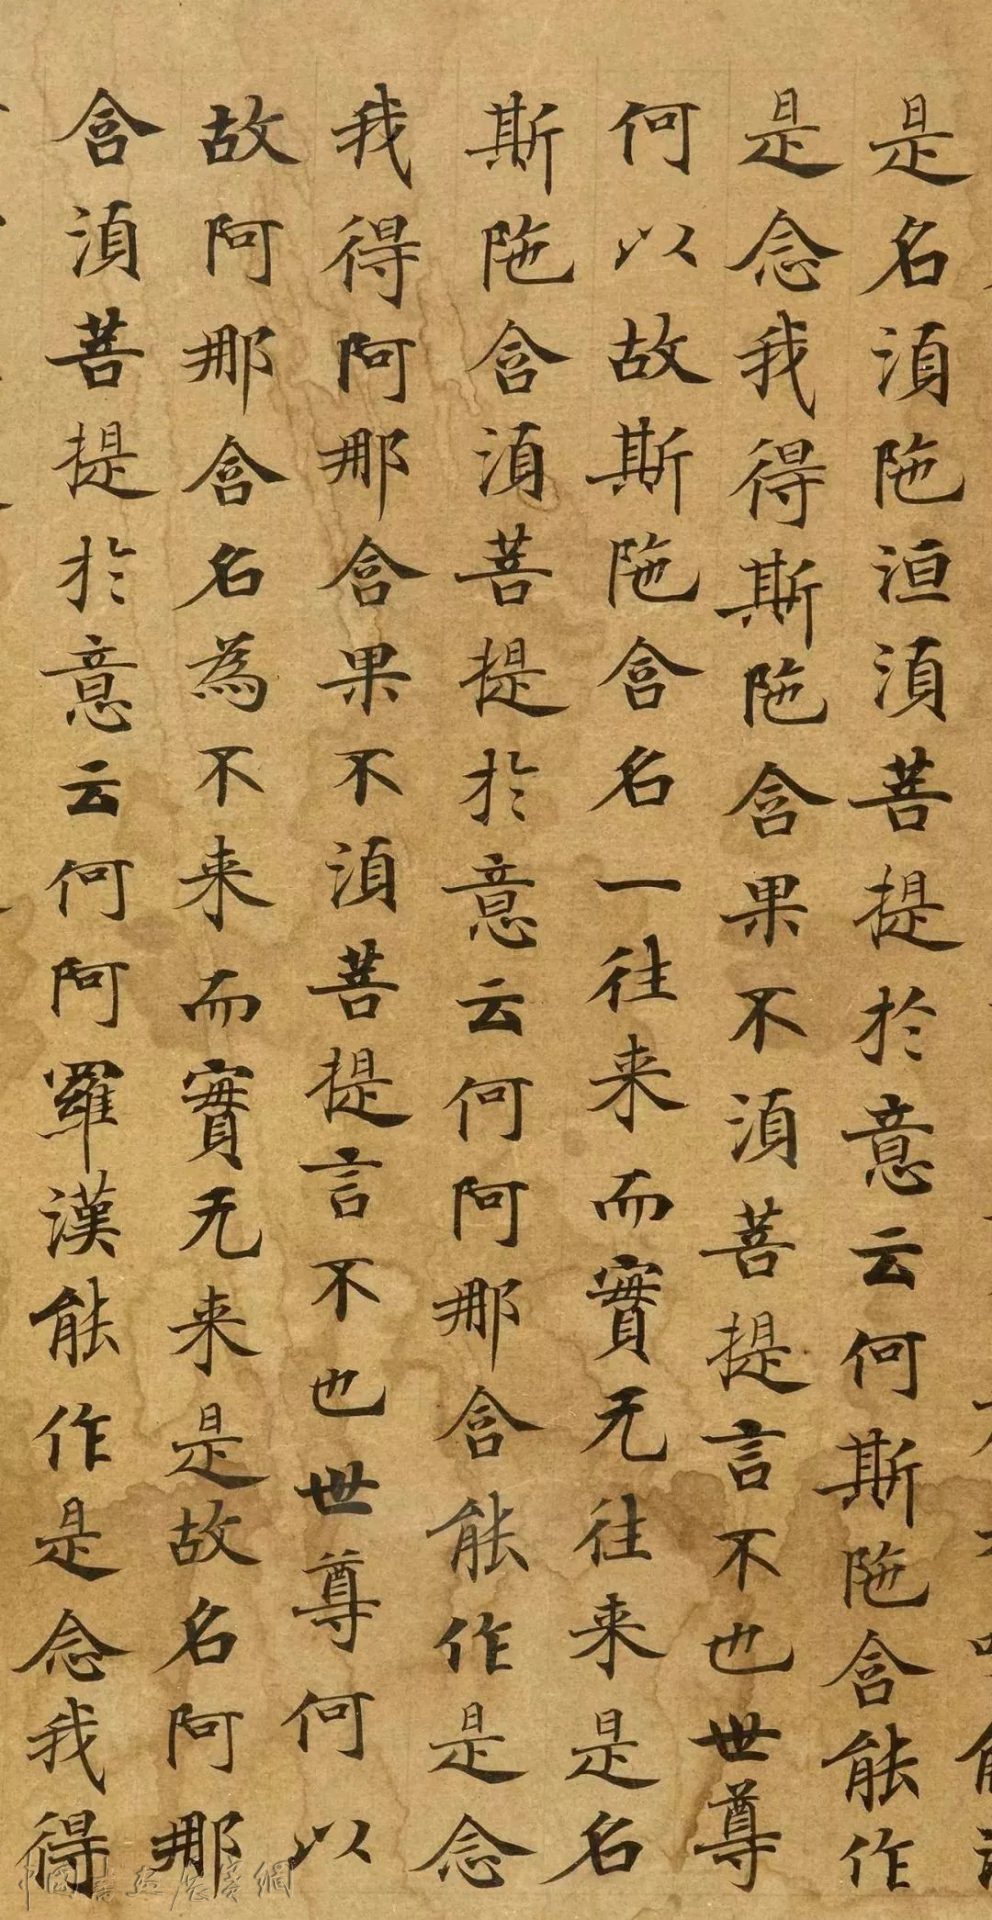 是名須陁洹須菩提於意云何斯陁含能作
是念我得斯陁含果不須菩提言不也世尊
何以故斯陁含名一往来而實无往来是名
斯陁含須菩提於意云何阿那含能作是念
我得阿那含果不須菩提言不也世尊何以
故阿那含名為不来而實无来是故名阿那
含須菩提於意云何阿羅漢能作是念我得